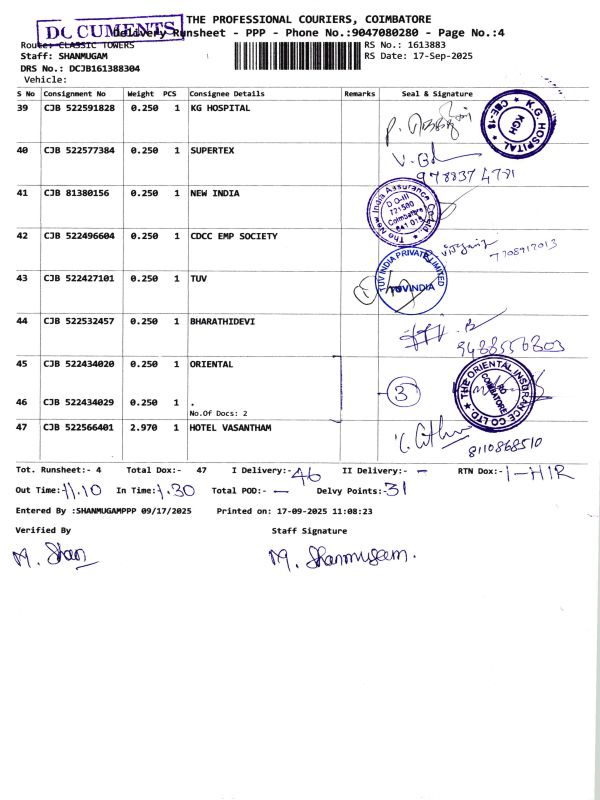 THE PROFESSIONAL COURIERS, COIMBATORE
DOCUMENTS
Delivery Runsheet - PPP - Phone No.:9047080280 - Page No.:4
Route: CLASSIC TOWERS RS No.: 1613883
Staff: SHANMUGAM RS Date: 17-Sep-2025
DRS No.: DCJB161388304
Vehicle:
S No Consignment No Weight PCS Consignee Details Remarks Seal & Signature
39 CJB 522591828 0.250 1 KG HOSPITAL
K.G. HOSPITAL
KGH
CBE-18
40 CJB 522577384 0.250 1 SUPERTEX
9788374781
41 CJB 81380156 0.250 1 NEW INDIA
The New India Assurance Co. Ltd.
D O-III
721500
Coimbatore
641 018
42 CJB 522496604 0.250 1 CDCC EMP SOCIETY
7708917013
43 CJB 522427101 0.250 1 TUV
TUV INDIA PRIVATE LIMITED
TUV INDIA
44 CJB 522532457 0.250 1 BHARATHIDEVI
9488556803
45 CJB 522434020 0.250 1 ORIENTAL
THE ORIENTAL INSURANCE CO LTD
RO
COIMBATORE
3
46 CJB 522434029 0.250 1 .
No.Of Docs: 2
47 CJB 522566401 2.970 1 HOTEL VASANTHAM
8110868510
Tot. Runsheet:- 4 Total Dox:- 47 I Delivery:- 46 II Delivery:- - RTN Dox:- 1-HIR
Out Time:- 11.10 In Time:- 1.30 Total POD:- - Delvy Points:- 31
Entered By :SHANMUGAMPPP 09/17/2025 Printed on: 17-09-2025 11:08:23
Verified By Staff Signature
M. Shan M. Shanmugam.